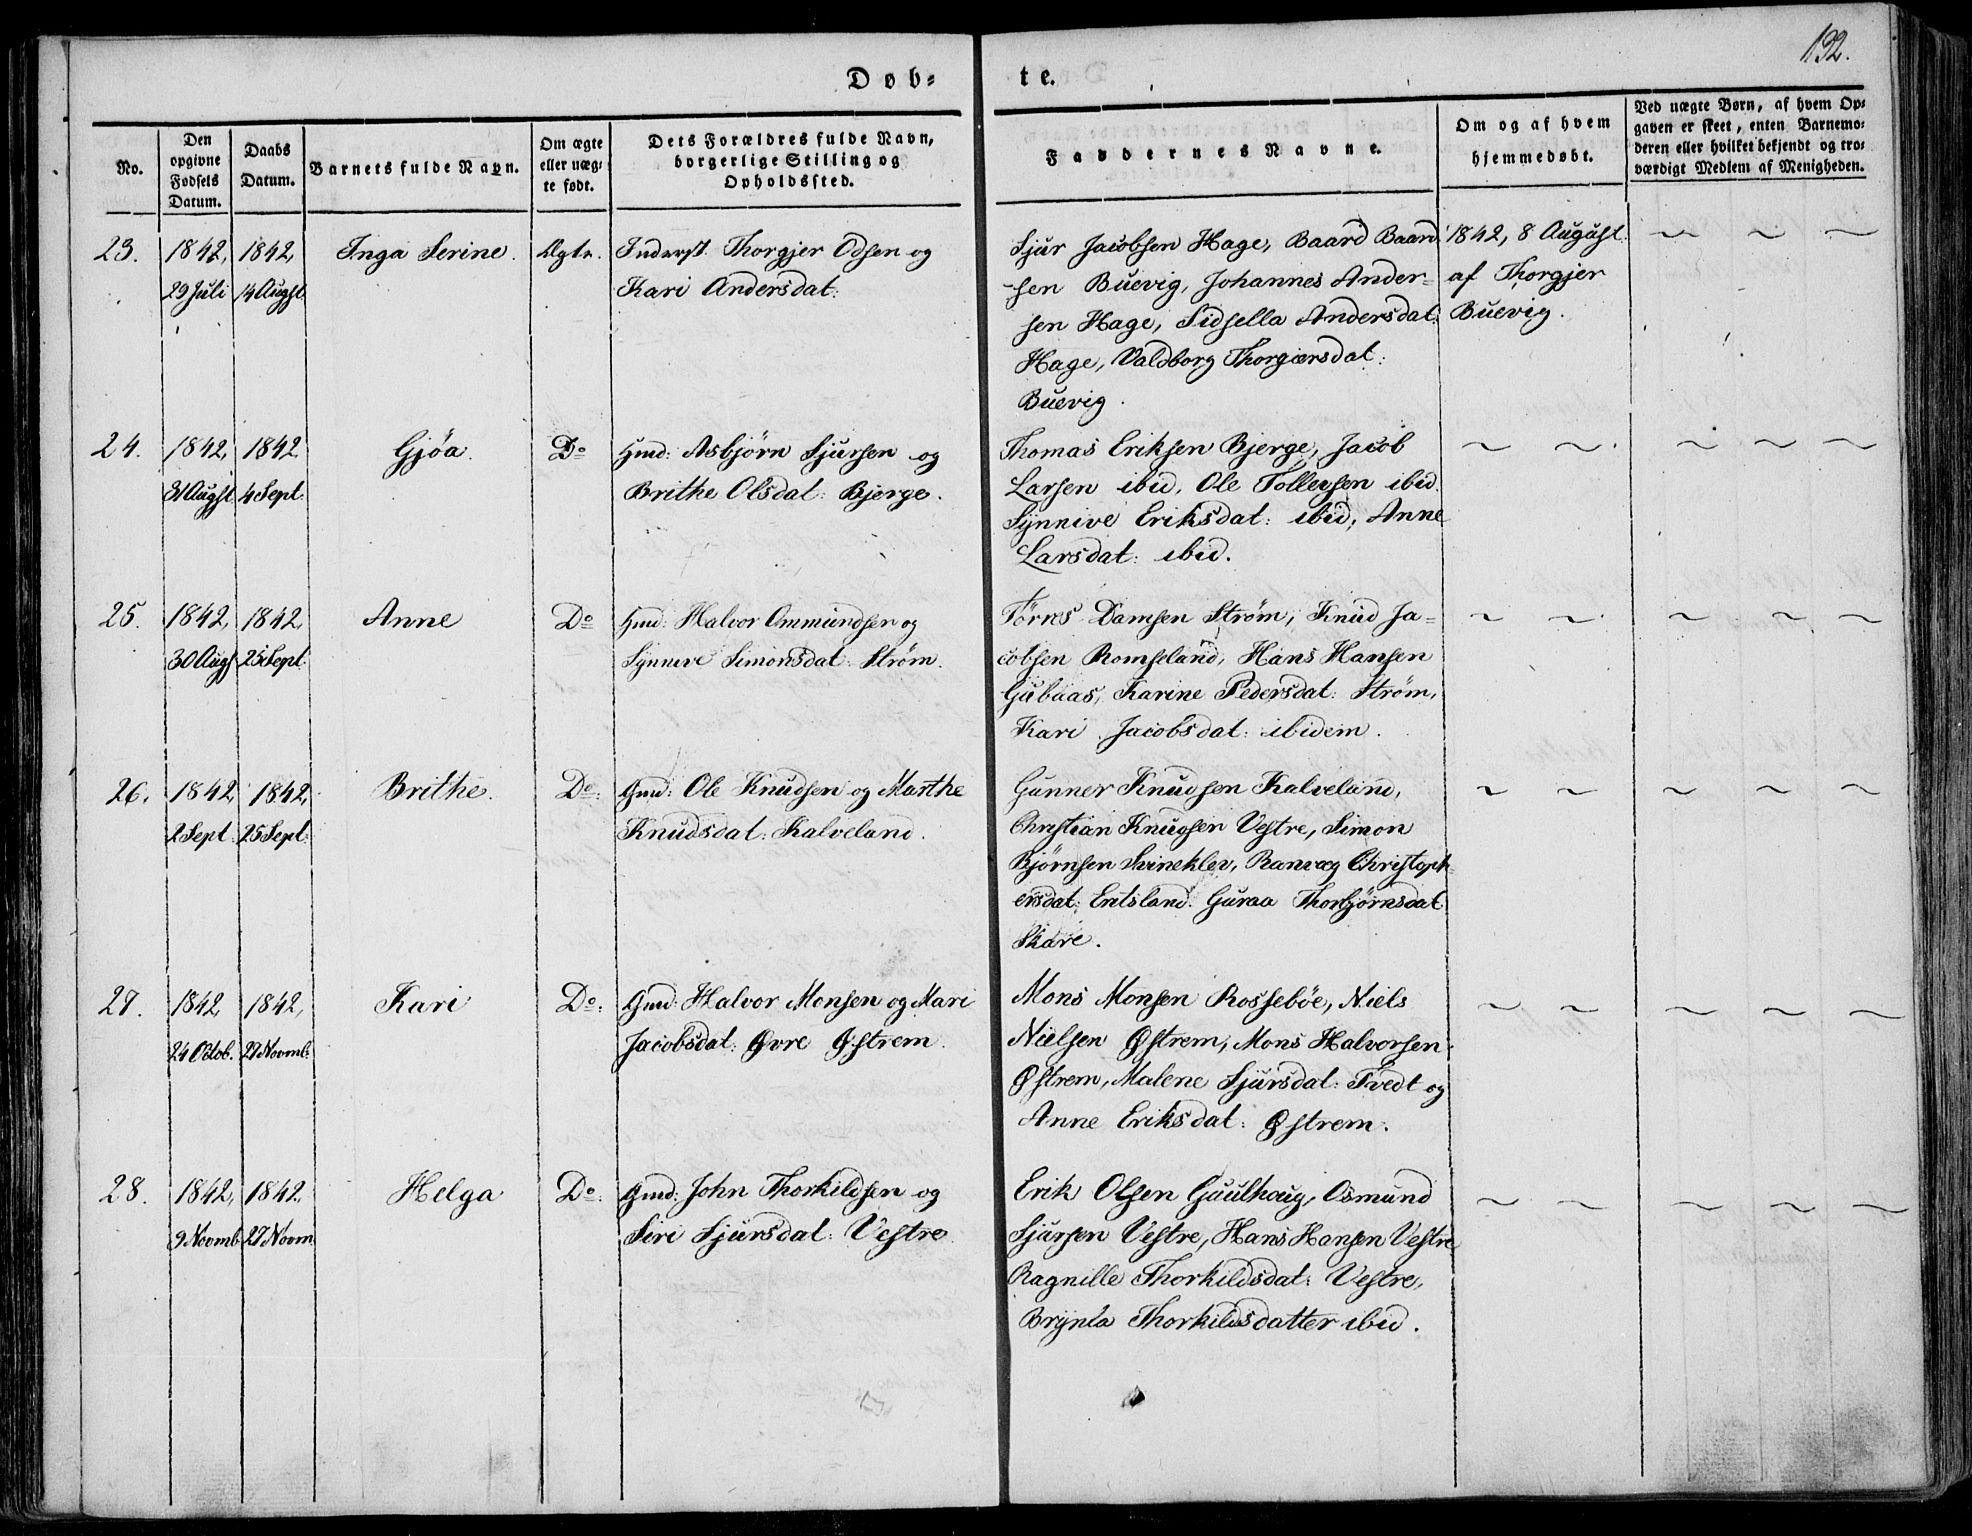 132.
Døb= te.
No.
Den
opgivne
Fødsels
Datum.
Daabs
Datum.
Barnets fulde Navn.
Om ægte
eller uæg=
te født.
Dets Forældres fulde Navn,
borgerlige Stilling og
Opholdssted.
Faddernes Navne.
Om og af hvem
hjemmedøbt.
Ved uægte Børn, af hvem Op=
gaven er skeet, enten Barnemo=
deren eller hvilket bekjendt og tro=
værdigt Medlem af Menigheden.
23. 1842, 1842, Inga Serine. Ægte. Inderst. Thorgjer Odsen og
29 Juli 14 Augst. Kari Andersdat:
Sjur Jacobsen Hage, Baard Baard
sen Buevig, Johannes Ander=
sen Hage, Sidsella Andersdat:
Hage, Valdborg Thorgiærsdat:
Buevig.
1842, 8 August.
af Thorgjer
Buevig.
~ ~ ~
24. 1842, 1842 Gjöa. Do Gmd: Asbjörn Sjursen og
31 Augst 4 Sept. Brithe Olsdat: Bjerge.
Thomas Eriksen Bjerge, Jacob
Larsen ibid, Ole Töllevsen ibid.
Synnive Eriksdat: ibid, Anne
Larsdat: ibid.
~ ~ ~ ~ ~
25. 1842, 1842, Anne Do Gmd: Halvor Ommundsen og
30 Augs 25 Sept. Synneve Simonsdat: Strøm.
Törres Damsen Strøm, Knud Ja=
cobsen Romseland, Hans Hansen
Gubaas, Karine Pedersdat: Strøm,
Kari Jacobsdat: ibidem.
~ ~ ~ ~ ~
26. 1842, 1842, Brithe. Do: Gmd: Ole Knudsen og Marthe
2 Sept. 25 Sept. Knudsdat: Kalveland.
Gunner Knudsen Kalveland,
Christian Knudsen Vestre, Simon
Bjørnsen Svineklev, Ranvæg Christoph
ersdat: Eritsland. Guraa Thorbjörnsdat
Skare.
~ ~ ~ ~ ~
27. 1842 1842, Kari Do: Gmd: Halvor Monsen og Mari
24 Octob. 27 Novmb. Jacobsdat: Øvre Østrem.
Mons Monsen Rossebøe, Niels
Nielsen Østrem, Mons Halvorsen
Østrem, Malene Sjursdat: Tvedt og
Anne Eriksdat: Østrem.
~ ~ ~ ~ ~
28. 1842, 1842, Helga Do: Gmd: John Thorkildsen og
9 Novmb 27 Novm Siri Sjursdat: Vestre
Erik Olsen Gaulhaug, Osmund
Sjursen Vestre, Hans Hansen Vestre
Ragnille Thorkildsdat: Vestre,
Brynla Thorkildsdatter ibid.
~ ~ ~ ~ ~